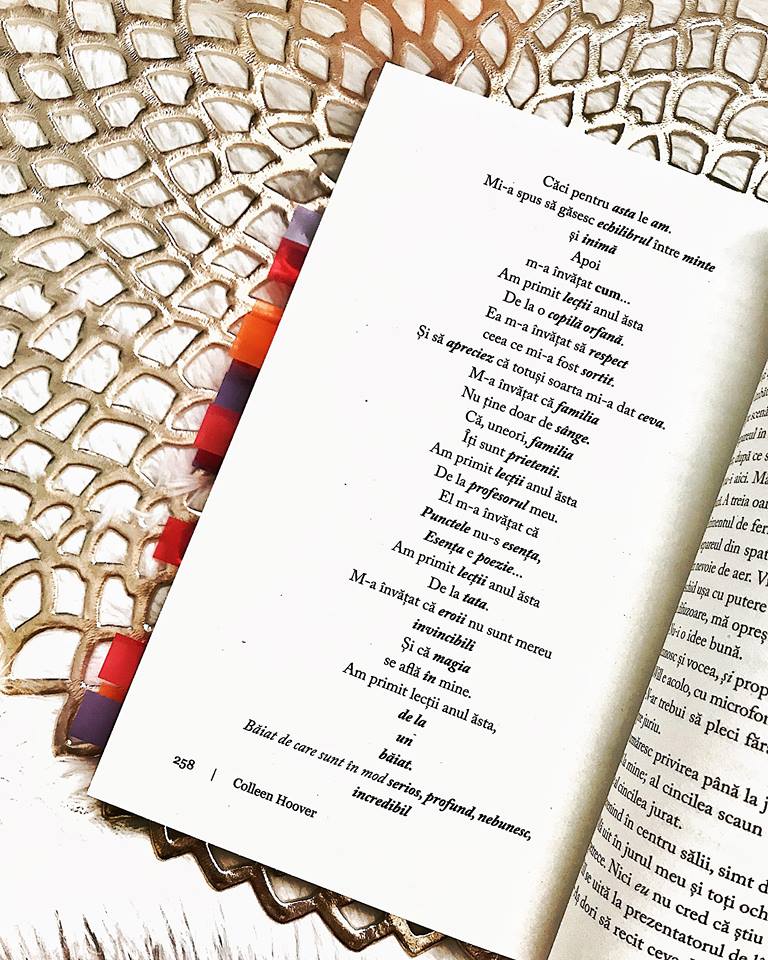 Căci pentru asta le am.
Mi-a spus să găsesc echilibrul între minte
și inimă
Apoi
m-a învățat cum...
Am primit lecții anul ăsta
De la o copilă orfană.
Ea m-a învățat să respect
ceea ce mi-a fost sortit.
Și să apreciez că totuși soarta mi-a dat ceva.
M-a învățat că familia
Nu ține doar de sânge.
Că, uneori, familia
Îți sunt prietenii.
Am primit lecții anul ăsta
De la profesorul meu.
El m-a învățat că
Punctele nu-s esența,
Esența e poezie...
Am primit lecții anul ăsta
De la tata.
M-a învățat că eroii nu sunt mereu
invincibili
Și că magia
se află în mine.
Am primit lecții anul ăsta,
de la
un
băiat.
Băiat de care sunt în mod serios, profund, nebunesc,
incredibil
258 | Colleen Hoover
după ce s
-i aici. Ma
A treia oar
de fer
din spat
nevoie de aer. V
ușa cu putere
mă opreș
o idee bună.
și vocea, și prop
e acolo, cu microfon
trebui să pleci fără
juriu.
privirea până la j
la mine; al cincilea scaun
cincilea jurat.
în centru sălii, simt d
uit în jurul meu și toți och
Nici eu nu cred că știu
se uită la prezentatorul de
dori să recit ceva